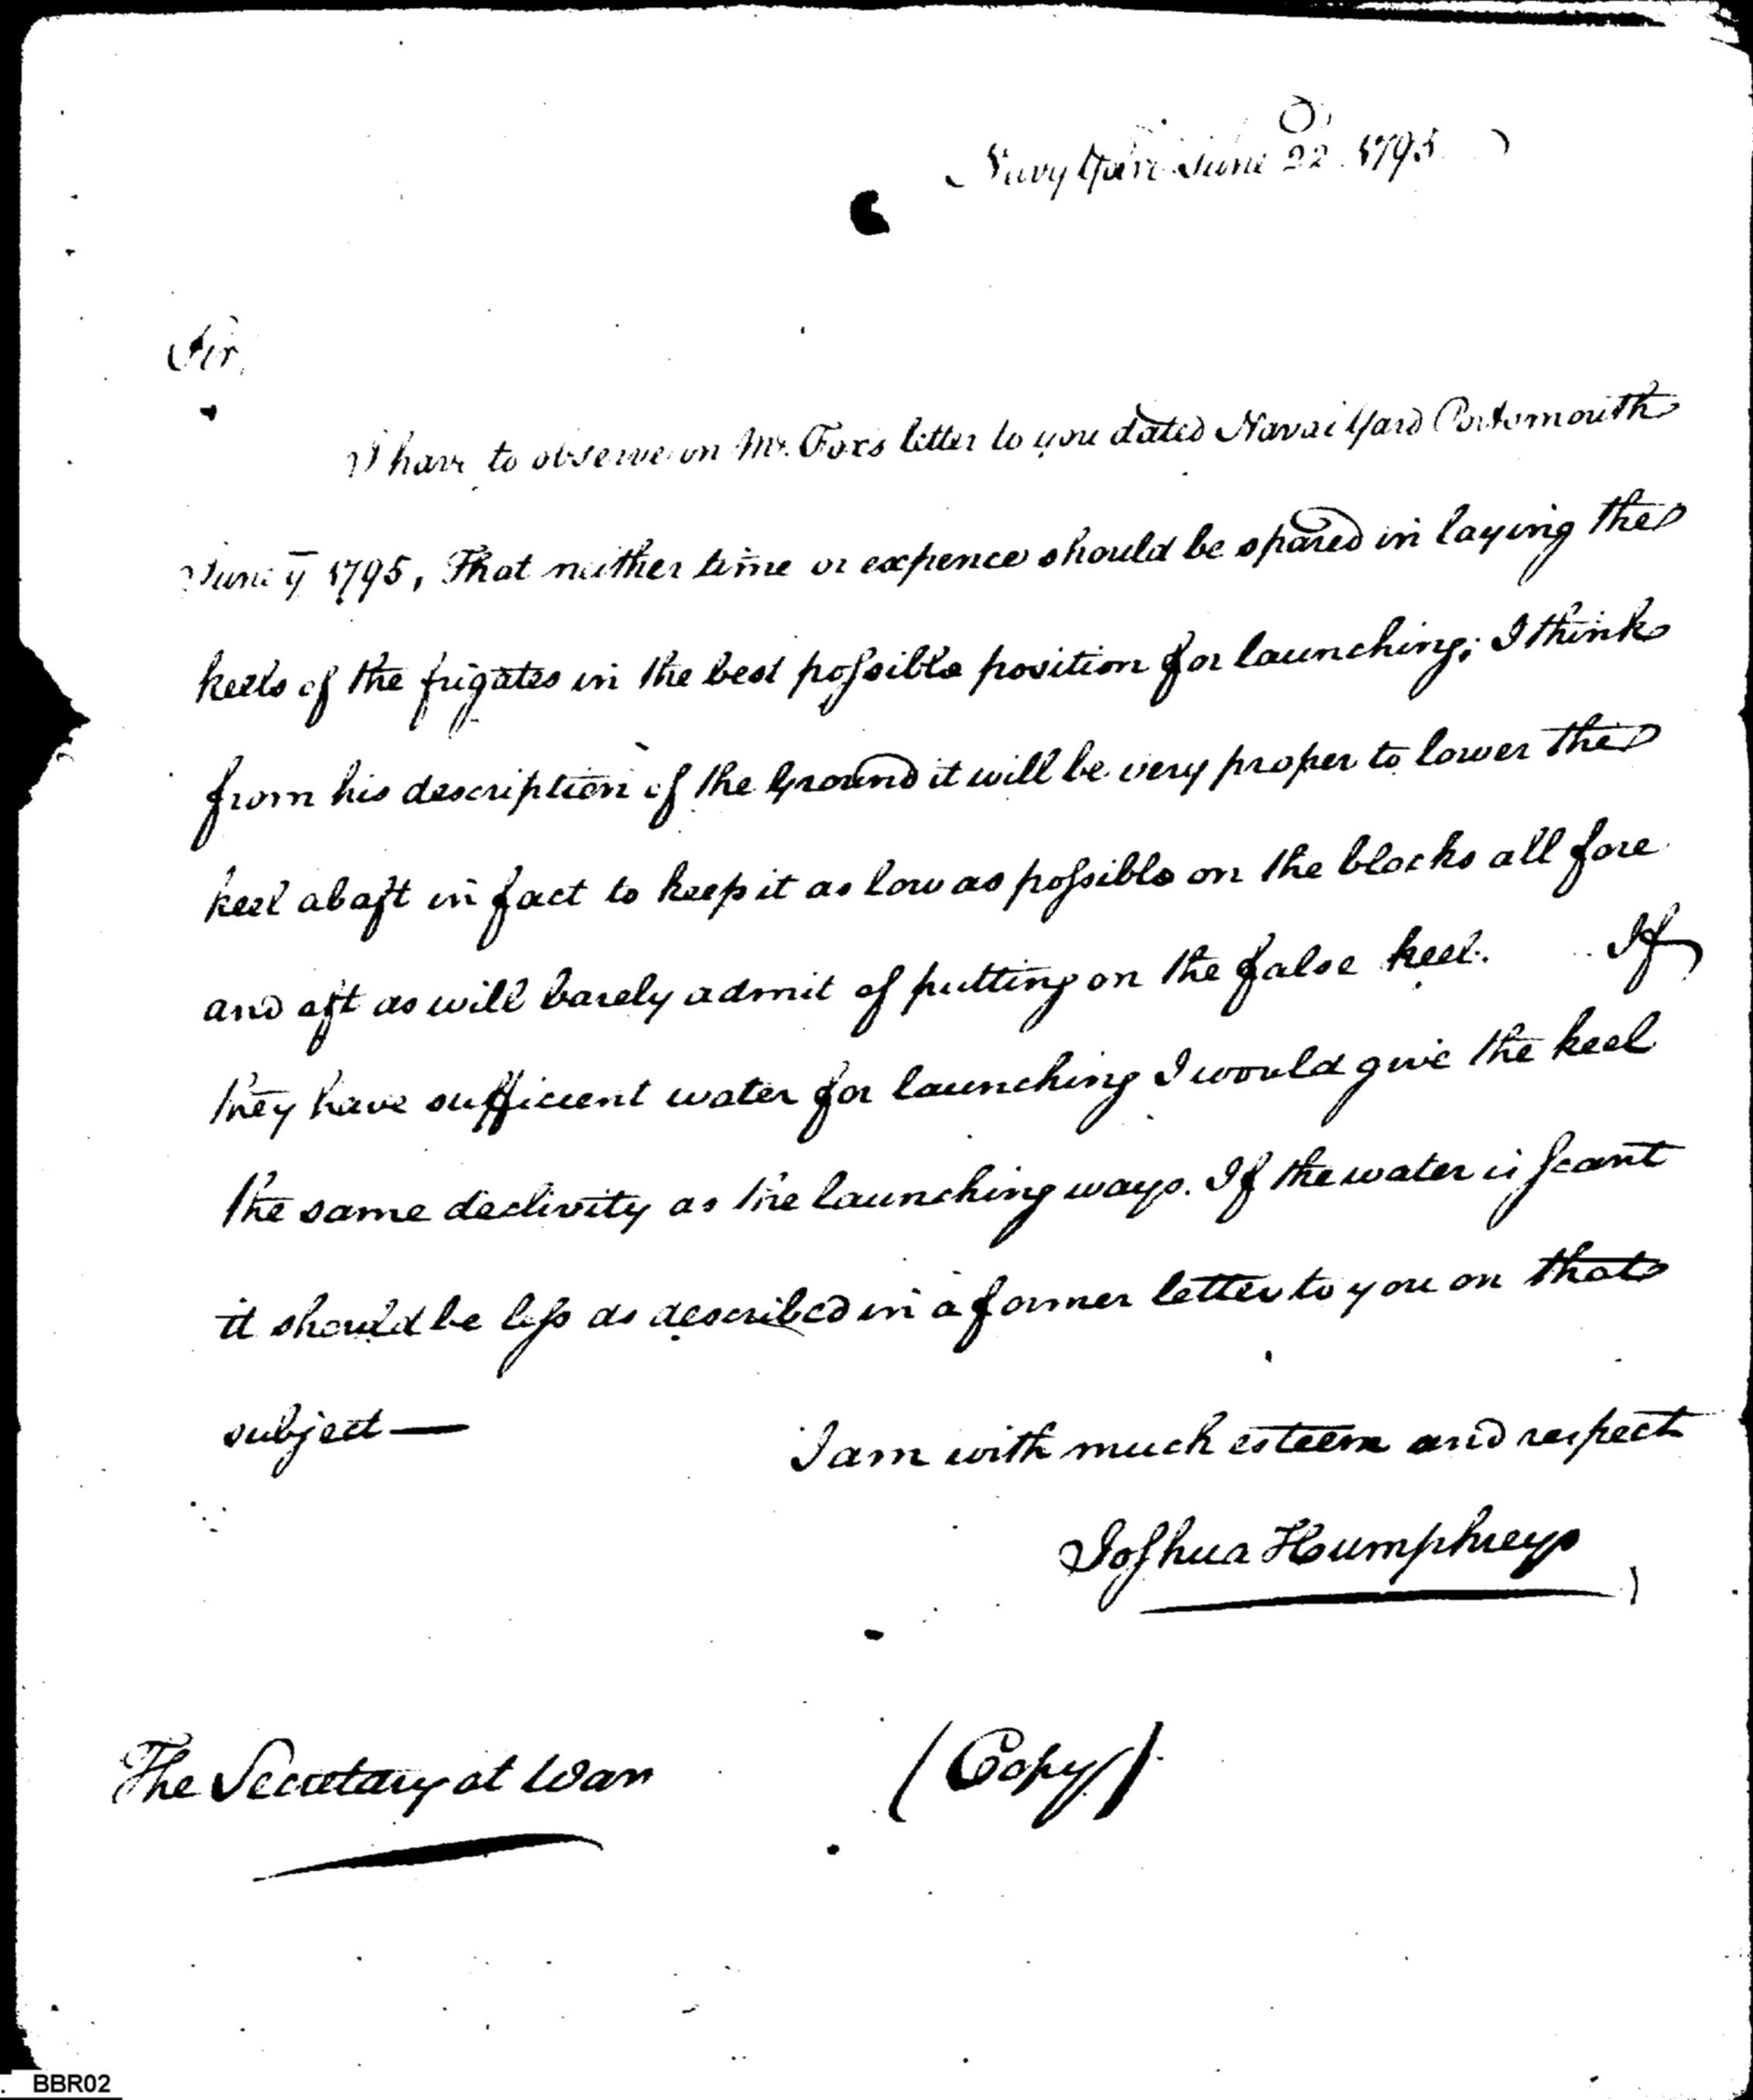 Navy Yard June 22 1795
Sir,
I have to observe on Mr. Fox's letter to you dated Naval Yard Portsmouth
June 1795, That neither time or expence should be spared in laying the
keels of the frigates in the best possible position for launching; I think
from his description of the Ground it will be very proper to lower the
keel abaft in fact to keep it as low as possible on the blocks all fore
and aft as will barely admit of putting on the false keel. If
they have sufficient water for launching I would give the keel
the same declivity as the launching ways. If the water is scant
it should be less as described in a former letter to you on that
subject —
I am with much esteem and respect
Joshua Humphreys
The Secretary at War
(Copy)
BBR02